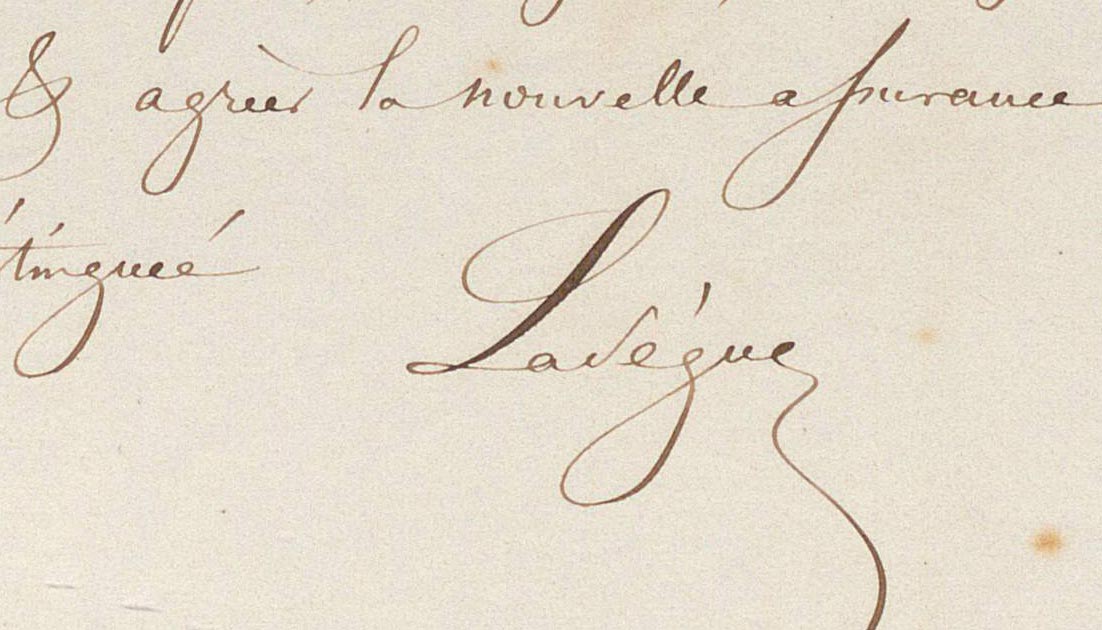 & agréer la nouvelle assurance
tinguée
Ladègue